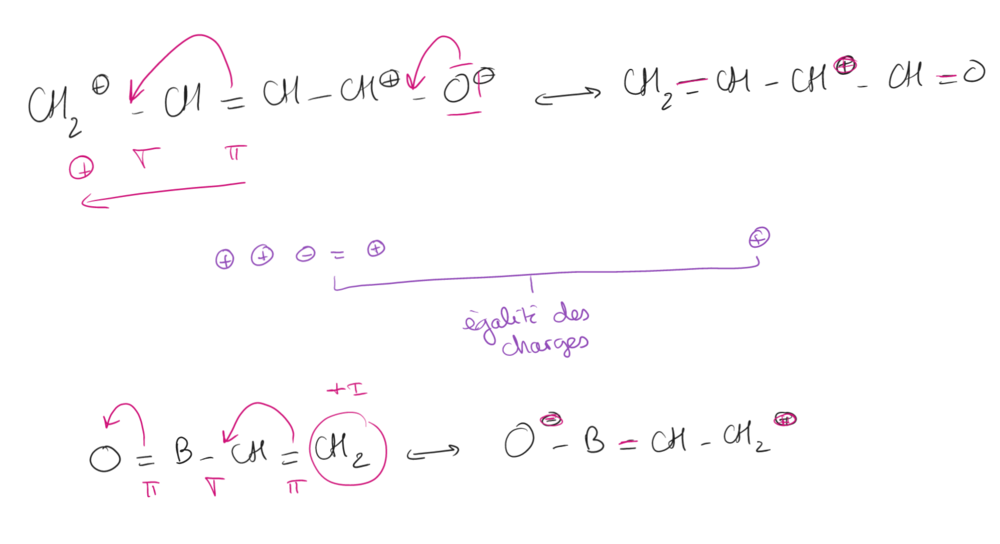 CH₂⊕ - CH = CH - CH⊕ - O⊖ ⟷ CH₂ = CH - CH⊕ - CH = O
⊕ σ π
⊕ ⊕ ⊖ = ⊕ ⊕
égalité des
charges
+I
O = B - CH = CH₂ ⟷ O⊖ - B = CH - CH₂⊕
π σ π